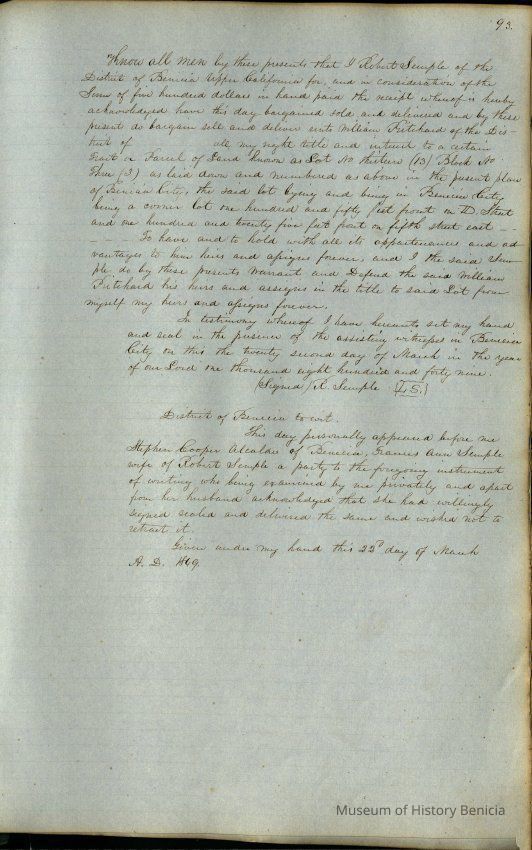 93.
Know all men by these presents that I Robert Semple of the
District of Benicia Upper California for, and in consideration of the
Sum of five hundred dollars in hand paid the receipt whereof is hereby
acknowledged have this day bargained sold and delivered and by these
present do bargain sell and deliver unto William Pritchard of the Dis-
trict of all my right title and interest to a certain
Tract or Parcel of Land known as Lot No thirteen (13) Block No
Three (3) as laid down and numbered as above in the present plan
of Benicia City, the said lot lying and being in Benicia City
being a corner lot one hundred and fifty feet front on D. Street
and one hundred and twenty five feet front on fifth street east - -
- - - - To have and to hold with all its appurtenances and ad-
vantages to him heirs and assigns forever, and I the said Sem-
ple do by these presents Warrant and Defend the said William
Pritchard his heirs and assigns in the title to said Lot from
myself my heirs and assigns forever.
In testimony whereof I have hereunto set my hand
and seal in the presence of the assisting witnesses in Benicia
City on this the twenty second day of March in the year
of our Lord one thousand eight hundred and forty nine.
(Signed) R. Semple {L.S.}
District of Benicia to wit.
This day personally appeared before me
Stephen Cooper Alcalde of Benicia, Frances Ann Semple
wife of Robert Semple a party to the foregoing instrument
of writing who being examined by me privately and apart
from her husband acknowledged that she had willingly
signed sealed and delivered the same and wished not to
retract it.
Given under my hand this 22d day of March
A. D. 1849.
Museum of History Benicia